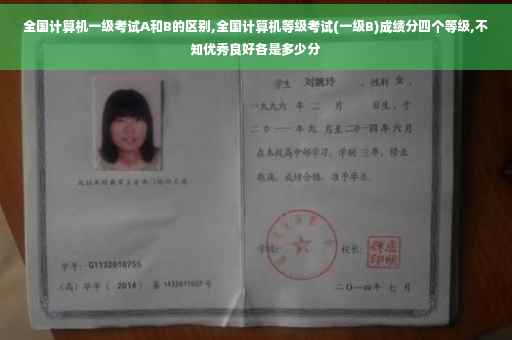 全国计算机一级考试A和B的区别,全国计算机等级考试(一级B)成绩分四个等级,不
知优秀良好各是多少分
学生 刘婉玲 ,性别 女 ,
一九九六 年 二 月 日生,于
二〇一一年九 月至二〇一四年 六 月
在本校高中部学习,学制 三年,修业
期满,成绩合格,准予毕业。
学校: 校长:
学号: G1132010755
(高)毕字( 2014 )第 1432011027 号
二〇一四年 七 月